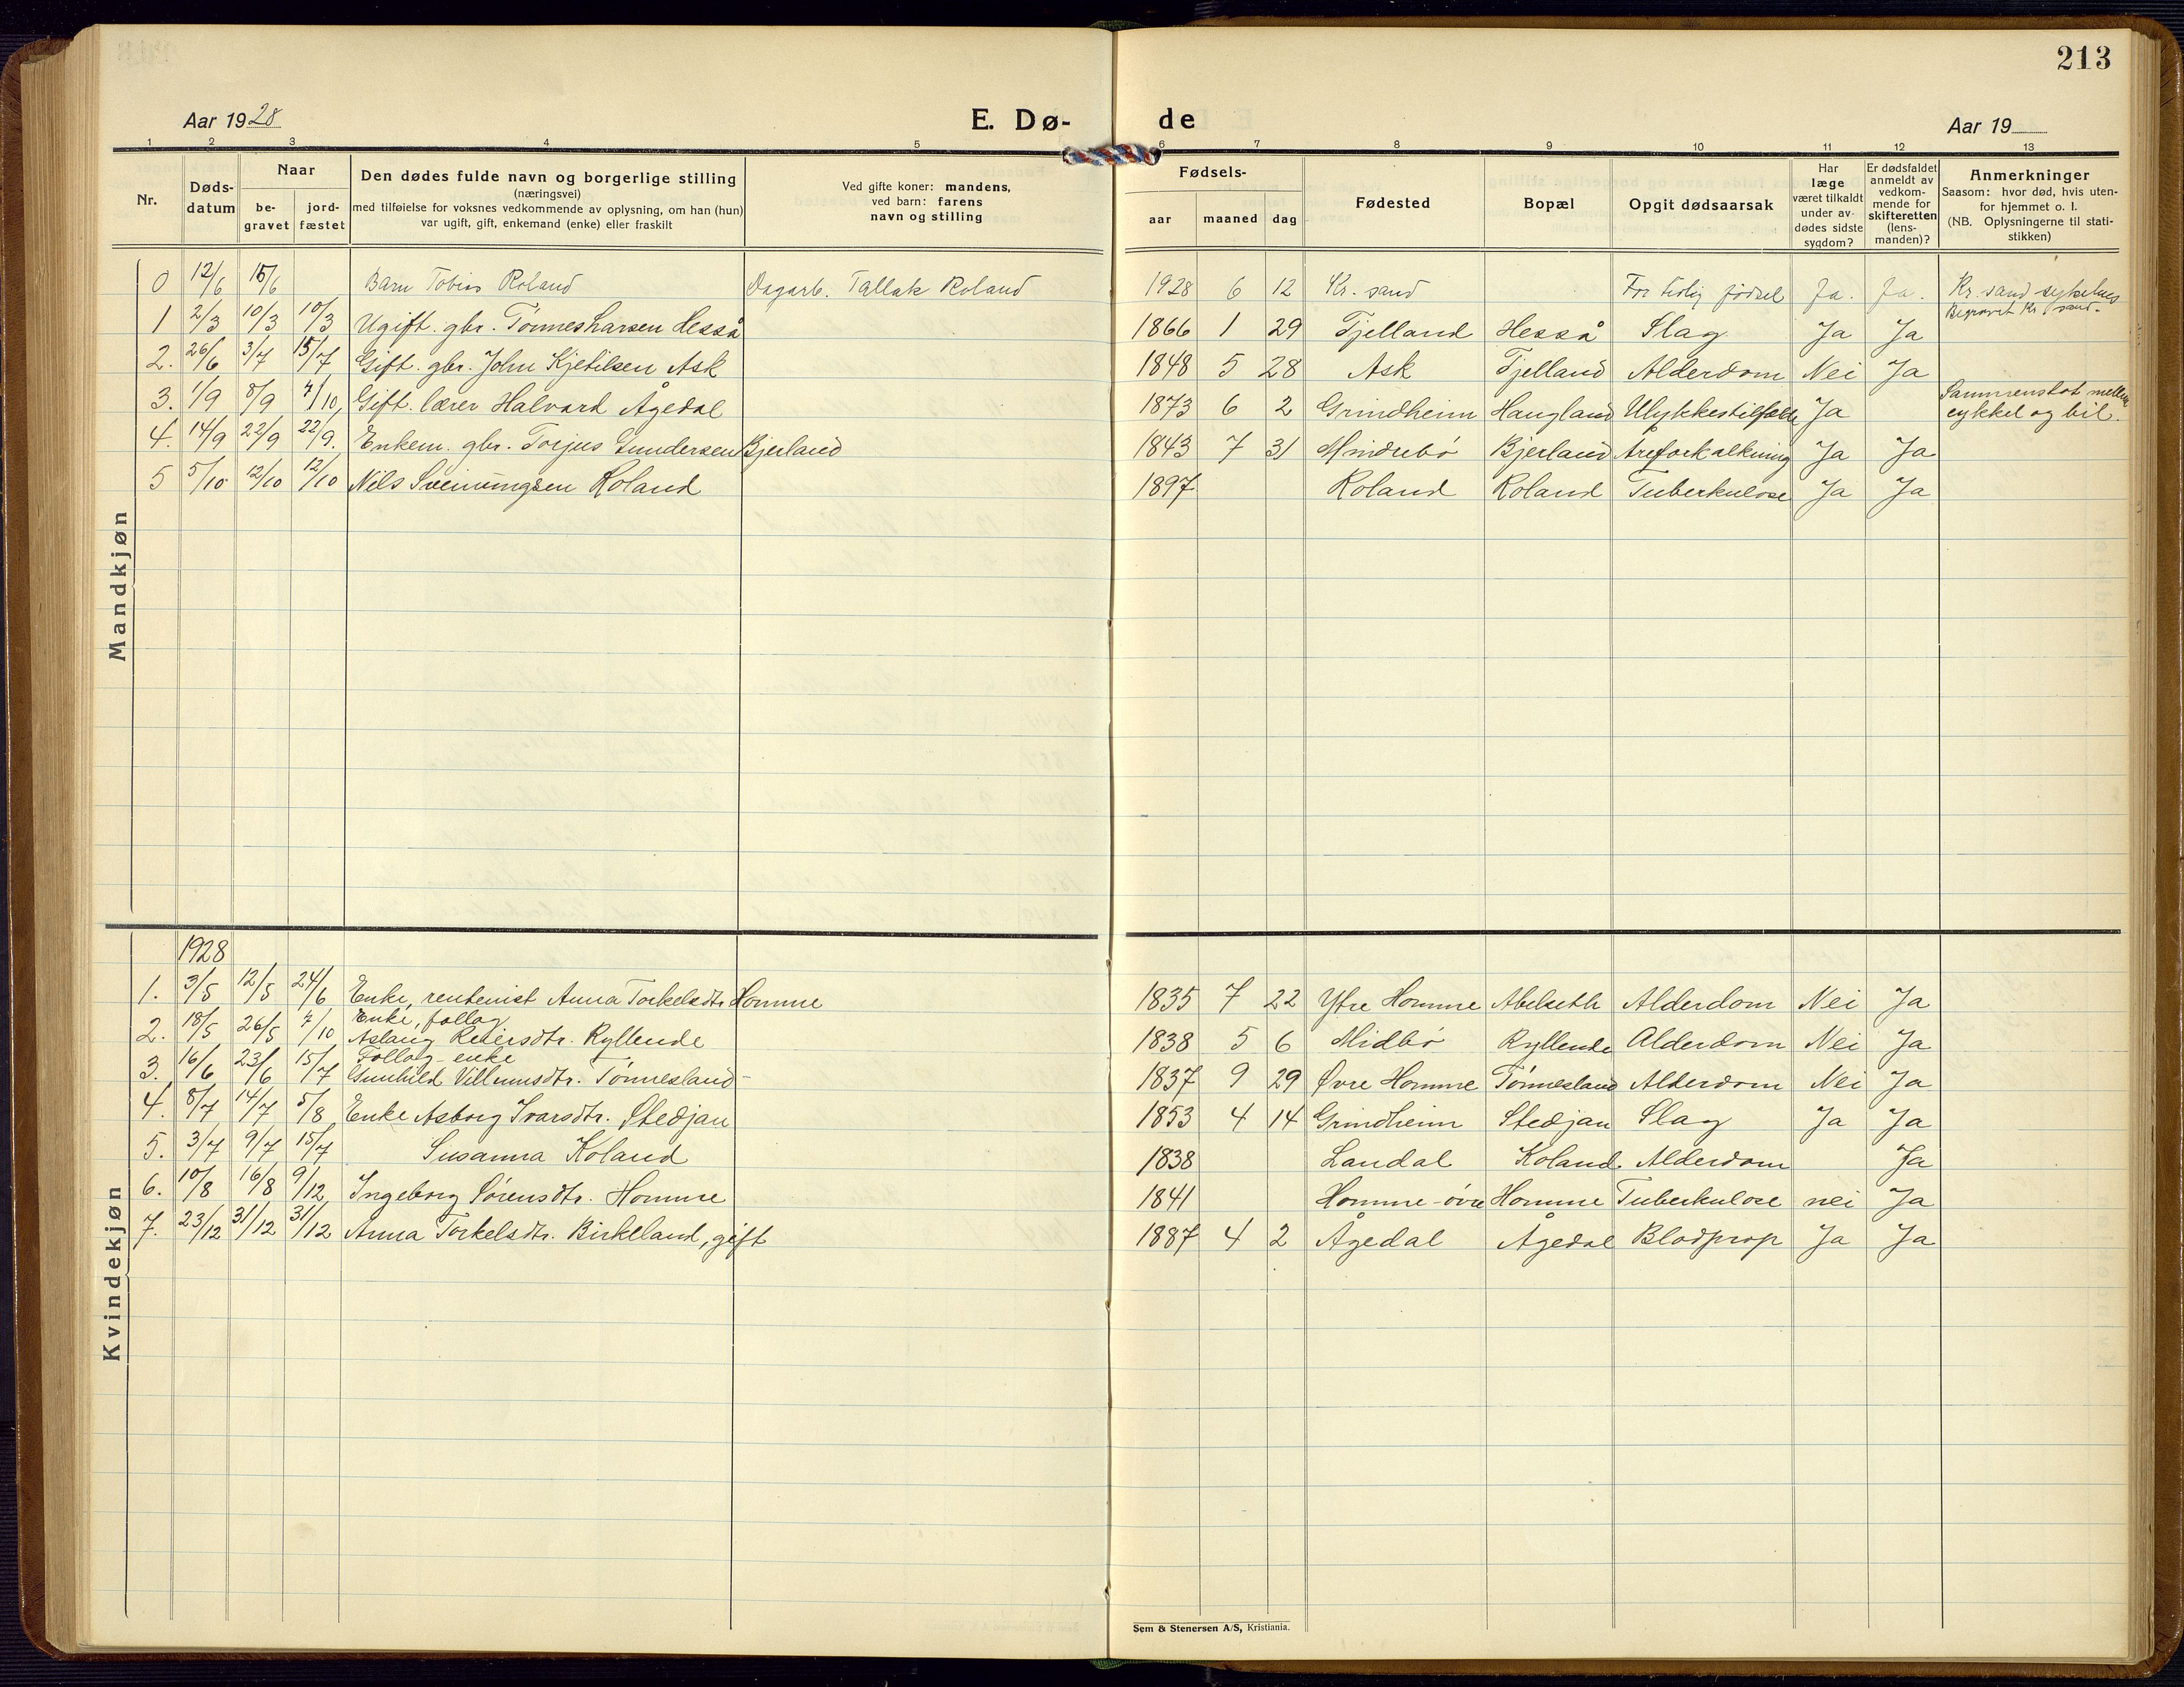 213
Aar 1928
E. Dø-
de
Aar 19
1 2 3 4 5 6 7 8 9 10 11 12 13
Nr.
Døds-
datum
Naar
be-
gravet
jord-
fæstet
Den dødes fulde navn og borgerlige stilling
(næringsvei)
med tilføielse for voksnes vedkommende av oplysning, om han (hun)
var ugift, gift, enkemand (enke) eller fraskilt
Ved gifte koner: mandens,
ved barn: farens
navn og stilling
Fødsels-
aar
maaned
dag
Fødested
Bopæl
Opgit dødsaarsak
Har
læge
været tilkaldt
under av-
dødes sidste
sygdom?
Er dødsfaldet
anmeldt av
vedkom-
mende for
skifteretten
(lens-
manden)?
Anmerkninger
Saasom: hvor død, hvis uten-
for hjemmet o. l.
(NB. Oplysningerne til stati-
stikken)
Mandkjøn
0 12/6 15/6 Barn Tobias Roland Dagarb. Tallak Roland 1928 6 12 Kr. sand For tidlig fødsel Ja. Ja. Kr. sand sykehus
Begravet Kr. sand.
1 2/3 10/3 10/3 Ugift. gbr. Tønnes Larsen Hesså 1866 1 29 Fjelland Hesså Slag Ja Ja
2. 26/6 3/7 15/7 Gift. gbr. John Kjetilsen Ask 1848 5 28 Ask Fjelland Alderdom Nei Ja
3. 1/9 8/9 7/10 Gift. lærer Halvard Ågedal 1873 6 2 Grindheim Haugland Ulykkestilfælle Ja Sammenstøt mellem
cykkel og bil.
4. 14/9 22/9 22/9. Enkem. gbr. Torjus Gundersen Bjerland 1843 7 31 Mindrebø Bjerland Åreforkalkning Ja Ja
5 5/10 12/10 12/10 Nils Sveinungsen Roland 1897 Roland Roland Tuberkulose Ja Ja
Kvindekjøn
1928
1. 3/5 12/5 24/6 Enke, rentenist Anna Torkelsdtr. Homme 1835 7 22 Ytre Homme Abelseth Alderdom Nei Ja
Enke, follog
2. 18/5 26/5 7/10 Aslaug Reiersdtr. Ryllende 1838 5 6 Midbø Ryllende Alderdom Nei Ja
Follog-enke
3. 16/6 23/6 15/7 Gunhild Villumsdtr. Tønnesland 1837 9 29 Øvre Homme Tønnesland Alderdom Nei Ja
4. 8/7 14/7 5/8 Enke Asborg Ivarsdtr. Stedjan 1853 4 14 Grindheim Stedjan Slag Ja Ja
5. 3/7 9/7 15/7 Susanna Koland 1838 Landal Koland Alderdom Ja
6. 10/8 16/8 9/12 Ingeborg Sørensdtr. Homme 1841 Homme-øvre Homme Tuberkulose nei Ja
7. 23/12 31/12 31/12 Anna Torkelsdtr. Birkeland, gift 1887 4 2 Ågedal Ågedal Blodprop Ja Ja
Sem & Stenersen A/S, Kristiania.